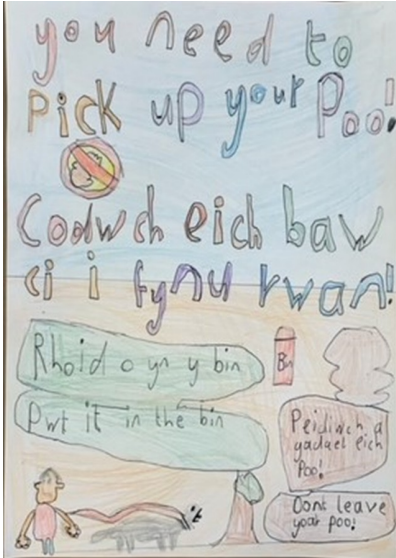 you need to
pick up your Poo!
Codwch eich baw
ci i fynu rwan!
Rhoid o yn y bin
Bin
Pwt it in the bin
Peidiwch a
gadael eich
Poo!
Dont leave
your poo!